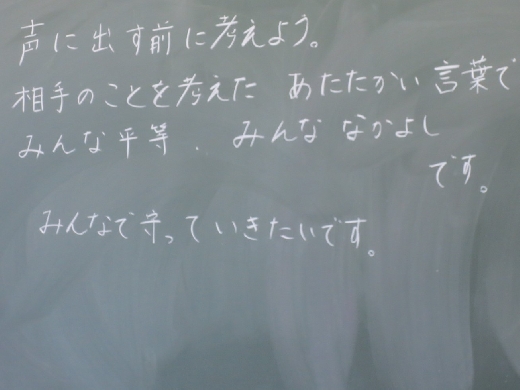 声に出す前に考えよう。
相手のことを考えた あたたかい言葉で
みんな平等、みんな なかよし
です。
みんなで守っていきたいです。